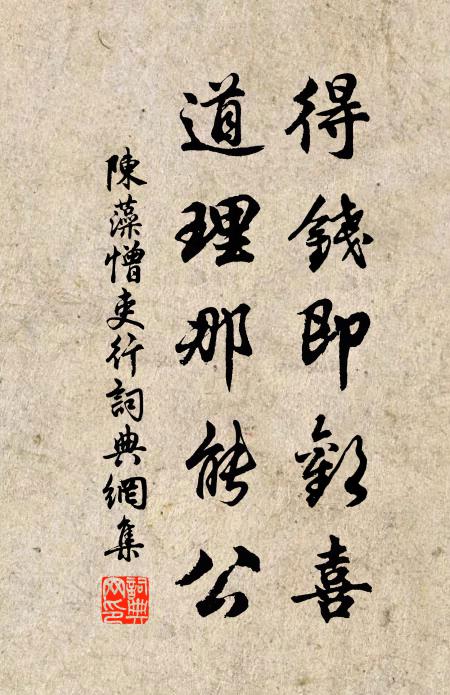 得錢即歡喜
道理那能公
陳藻憎吏行詞典網集
詞典
网印